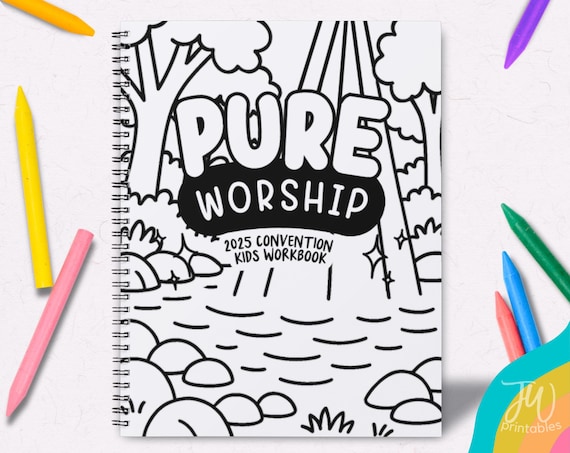 PURE
WORSHIP
2025 CONVENTION
KIDS WORKBOOK
JW
printables